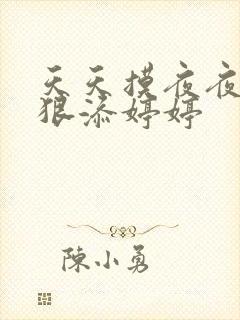 天天摸夜夜
狠添婷婷
陳小勇